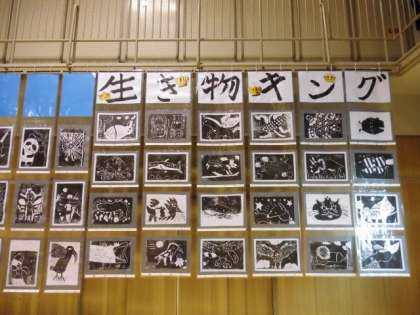 生き物キング